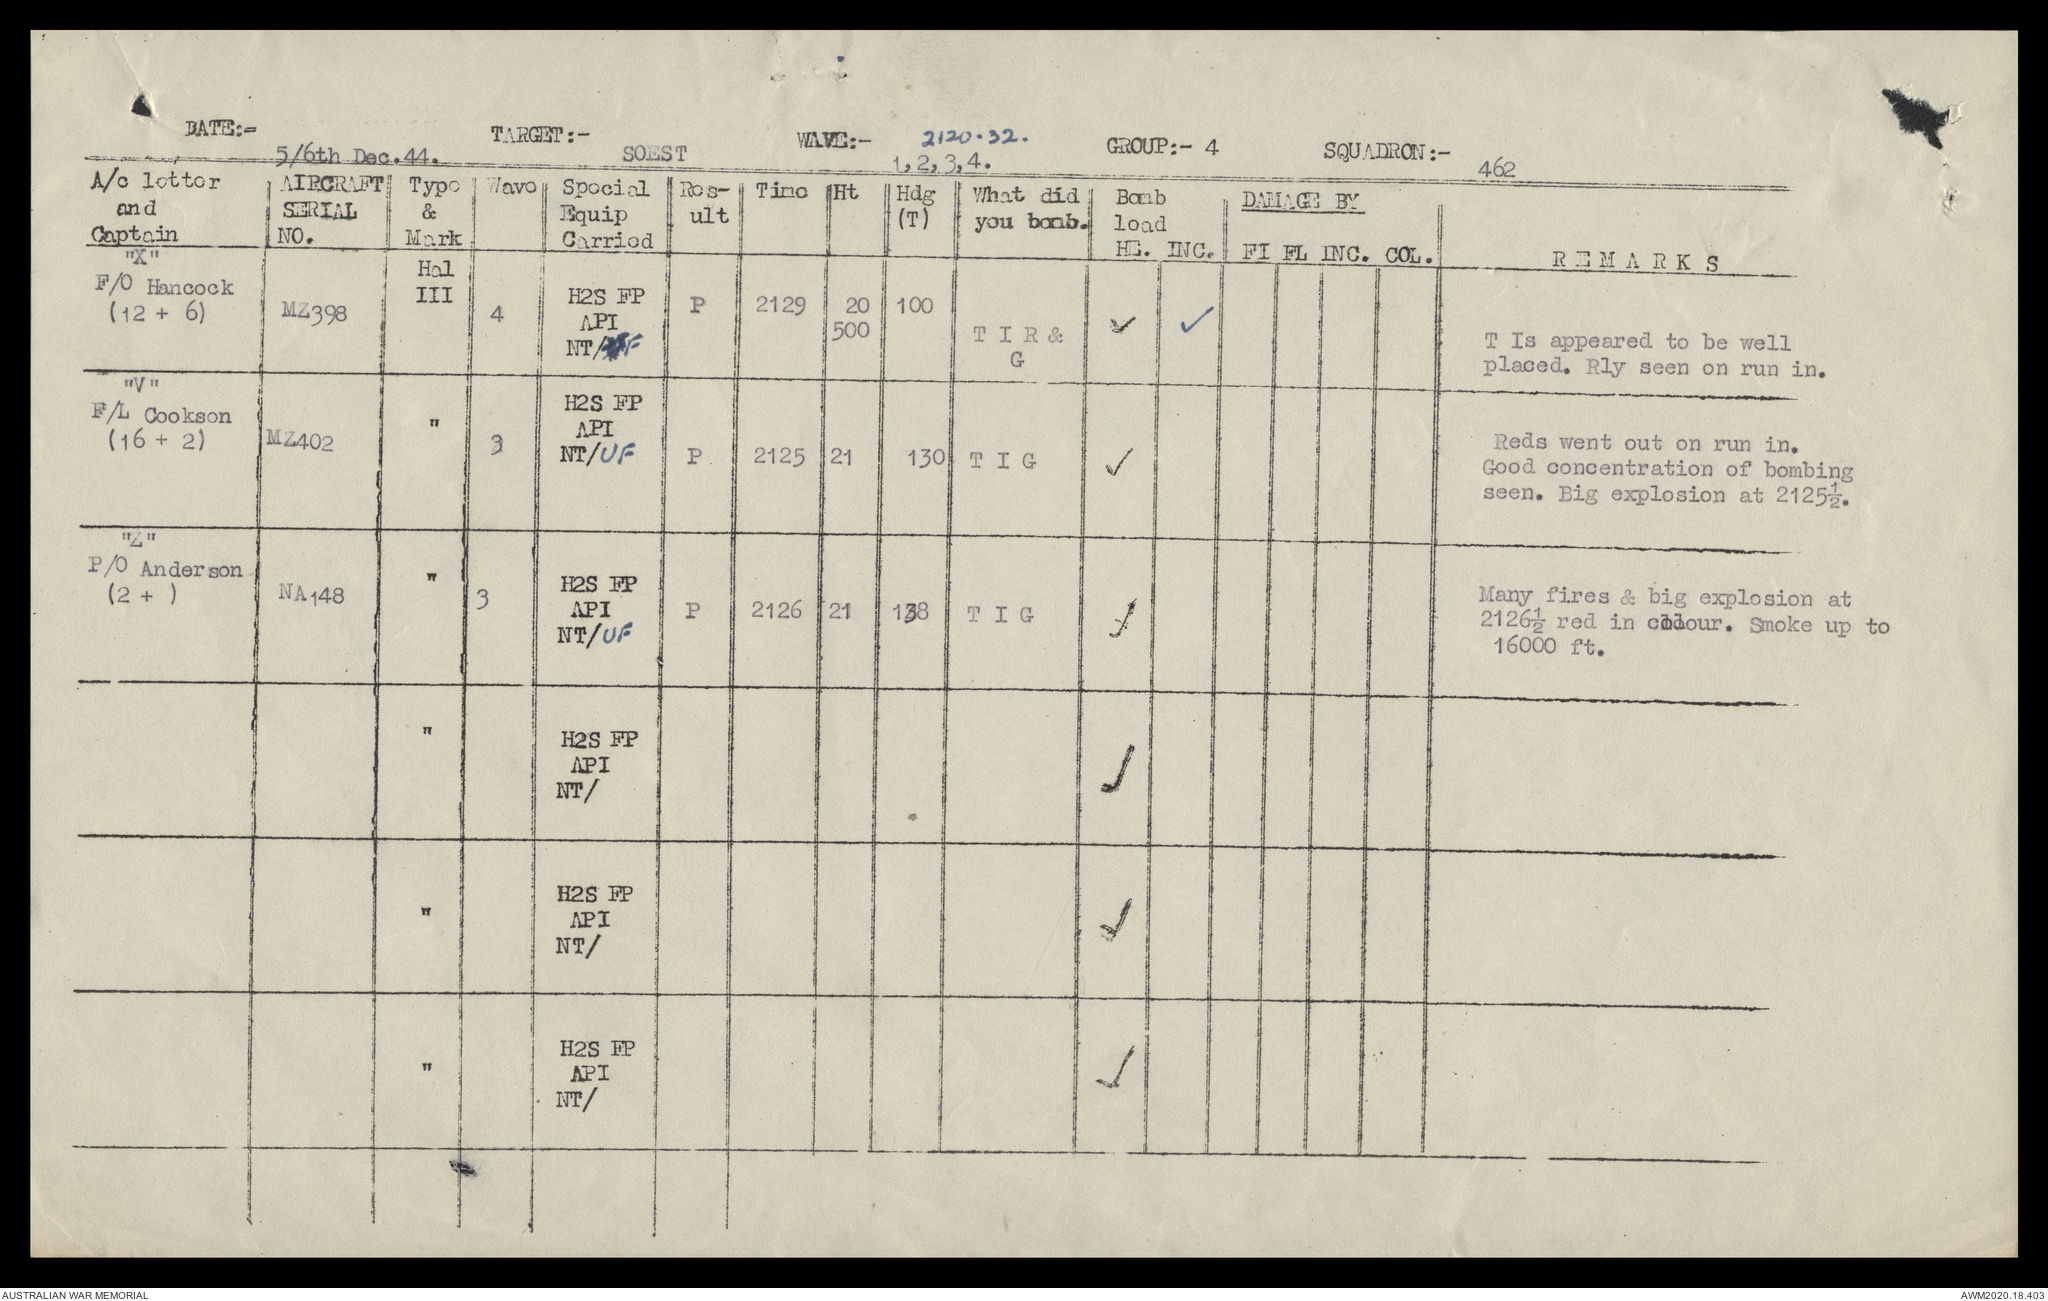 DATE:- 5/6th Dec.44. TARGET:- SOEST WAVE:- 2120.32. 1,2,3,4. GROUP:- 4 SQUADRON:- 462
A/c letter and Captain
AIRCRAFT SERIAL NO.
Type & Mark
Wave
Special Equip Carried
Res-ult
Time
Ht
Hdg (T)
What did you bomb.
Bomb load HE. INC.
DAMAGE BY
FI FL INC. COL.
R E M A R K S
"X"
F/O Hancock
(12 + 6)
MZ398
Hal
III
4
H2S FP
API
NT/UF
P
2129
20
500
100
T I R &
G
✓ ✓
T Is appeared to be well
placed. Rly seen on run in.
"V"
F/L Cookson
(16 + 2)
MZ402
"
3
H2S FP
API
NT/UF
P
2125
21
130
T I G
✓
Reds went out on run in.
Good concentration of bombing
seen. Big explosion at 2125½.
"Z"
P/O Anderson
(2 + )
NA148
"
3
H2S FP
API
NT/UF
P
2126
21
138
T I G
✓
Many fires & big explosion at
2126½ red in colour. Smoke up to
16000 ft.
"
H2S FP
API
NT/
✓
"
H2S FP
API
NT/
✓
"
H2S FP
API
NT/
✓
AUSTRALIAN WAR MEMORIAL
AWM2020.18.403